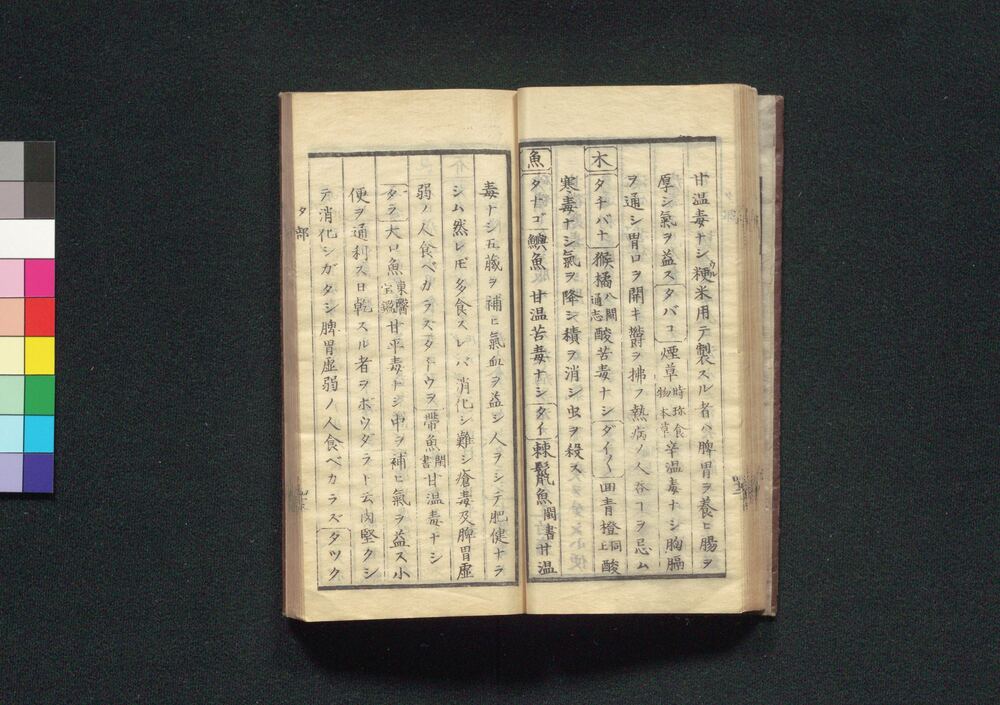 甘温毒ナシ粳米用テ製スル者ハ脾胃ヲ養ヒ腸ヲ
厚シ氣ヲ益スタバコ煙草時珍食物本草辛温毒ナシ胸膈
ヲ通シ胃口ヲ開キ欝ヲ拂フ熱病ノ人吞ヿヲ忌ム
木タチバナ猴橘ハ閩通志酸苦毒ナシダイ〱回青橙同上酸
寒毒ナシ氣ヲ降シ積ヲ消シ虫ヲ殺ス
魚タナゴ鱮魚甘温苦毒ナシタイ棘鬛魚閩書甘温
毒ナシ五臓ヲ補ヒ氣血ヲ益シ人ヲシテ肥健ナラ
シム然レㄴ多食スレバ消化シ難シ瘡毒及脾胃虚
弱ノ人食ベカラズタチウヲ帶魚閩書甘温毒ナシ
タラ大口魚東醫宝鑑甘平毒ナシ中ヲ補ヒ氣ヲ益ス小
便ヲ通利ス日乾スル者ヲボウダラト云肉堅クシ
テ消化シガタシ脾胃虚弱ノ人食ベカラズタツク
タ部